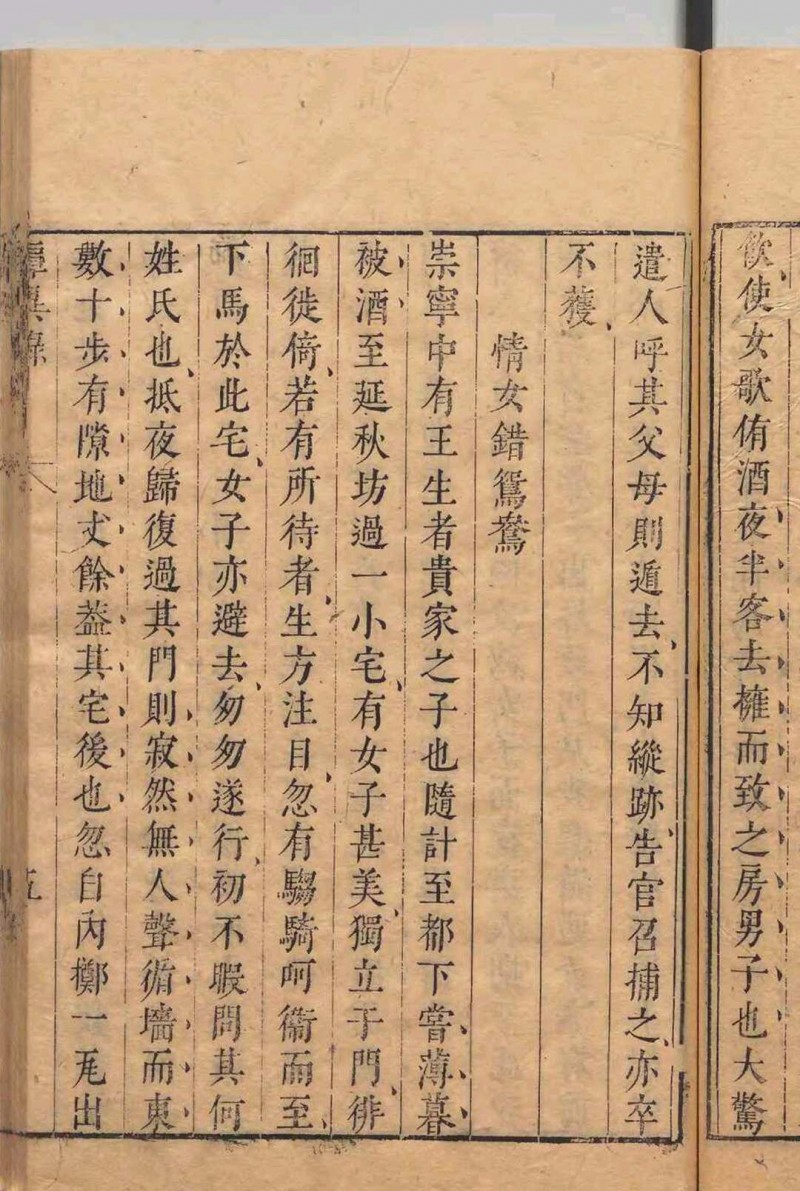 飲使女歌侑酒夜半客去擁而致之房男子也大驚
遣人呼其父母則遁去不知縱跡告官召捕之亦卒
不獲
情女錯鴛鴦
崇寧中有王生者貴家之子也隨計至都下嘗薄暮
被酒至延秋坊過一小宅有女子甚美獨立于門徘
徊徙倚若有所待者生方注目忽有騶騎呵衞而至
下馬於此宅女子亦避去匆匆遂行初不暇問其何
姓氏也抵夜歸復過其門則寂然無人聲循墻而東
數十步有隙地丈餘葢其宅後也忽自內擲一瓦出
異錄
五